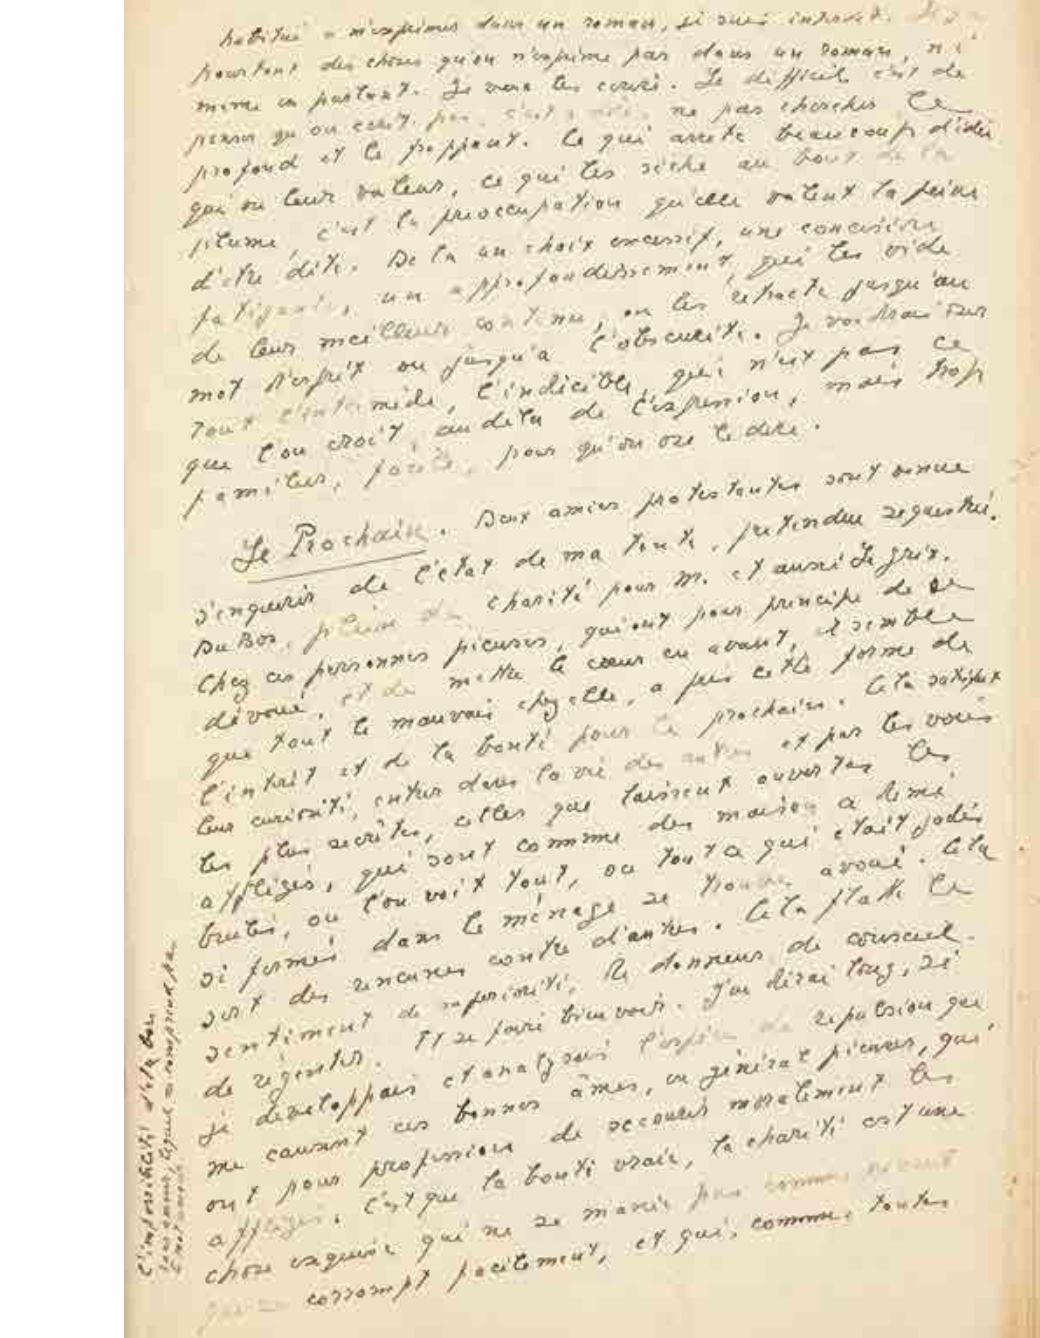 habitué a m'exprimer dans un roman, si suis
pourtant des choses qu'on n'exprime pas dans un roman, ni
meme en parlant. Je vais les ecrire. Le difficile c'est de
penser qu'on ecrit ne pas chercher le
profond et le frappant. Ce qui arrete beaucoup d'idées
qui on leur valeur, ce qui les sèche au bout de la
plume, c'est la preoccupation qu'elle valent la peine
d'etre dite. De la un choix excessif, une concision
fatigante, un approfondissement, qui les vide
de leur meilleur contenu, ou les retracte jusqu'au
mot d'esprit ou jusqu'a l'obscurité. Je voudrais sur
tout l'intimède, l'indicible, qui n'est pas ce
que l'on croit, au dela de l'expression, mais trop
familier, facile, pour qu'on ose le dire.
Le Prochain. Deux amies protestantes sont venue
s'enquerir de l'etat de ma tante, pretendue sequestrée.
Du Bos, pleine de charité pour M. et aussi de grix.
Chez ces personnes pieuses, qui ont pour principe de se
dévoué, et de mettre le cœur en avant, il semble
que tout le mauvais chez elle, a pris cette forme de
l'intérêt et de la bonté pour le prochain. Cela satisfait
leur curiosité, entrer dans la vie des autres et par les voies
les plus secrètes, celles que laissent ouvertes les
affligés, qui sont comme des maison a demi
brulés, ou l'on voit tout, ou tout a qui etait jadis
si fermés dans le ménage se trouve avoué. Cela
sert des rancunes contre d'autres. Cela flatte le
sentiment de superiorité, de donneur de conseil.
de régenter. Et se faire bien voir. J'en dirai long, si
je developpais et analysais l'espèce de repulsion que
me causent ces bonnes âmes, en général pieuses, qui
ont pour profession de secourir moralement les
affligés. C'est que la bonté vraie, la charité est une
chose exquise qui ne se manie pas comme
corrompt facilement, et qui, comme toutes
l'impossibilité d'etre bon
sans amour, lequel ne comprend pas